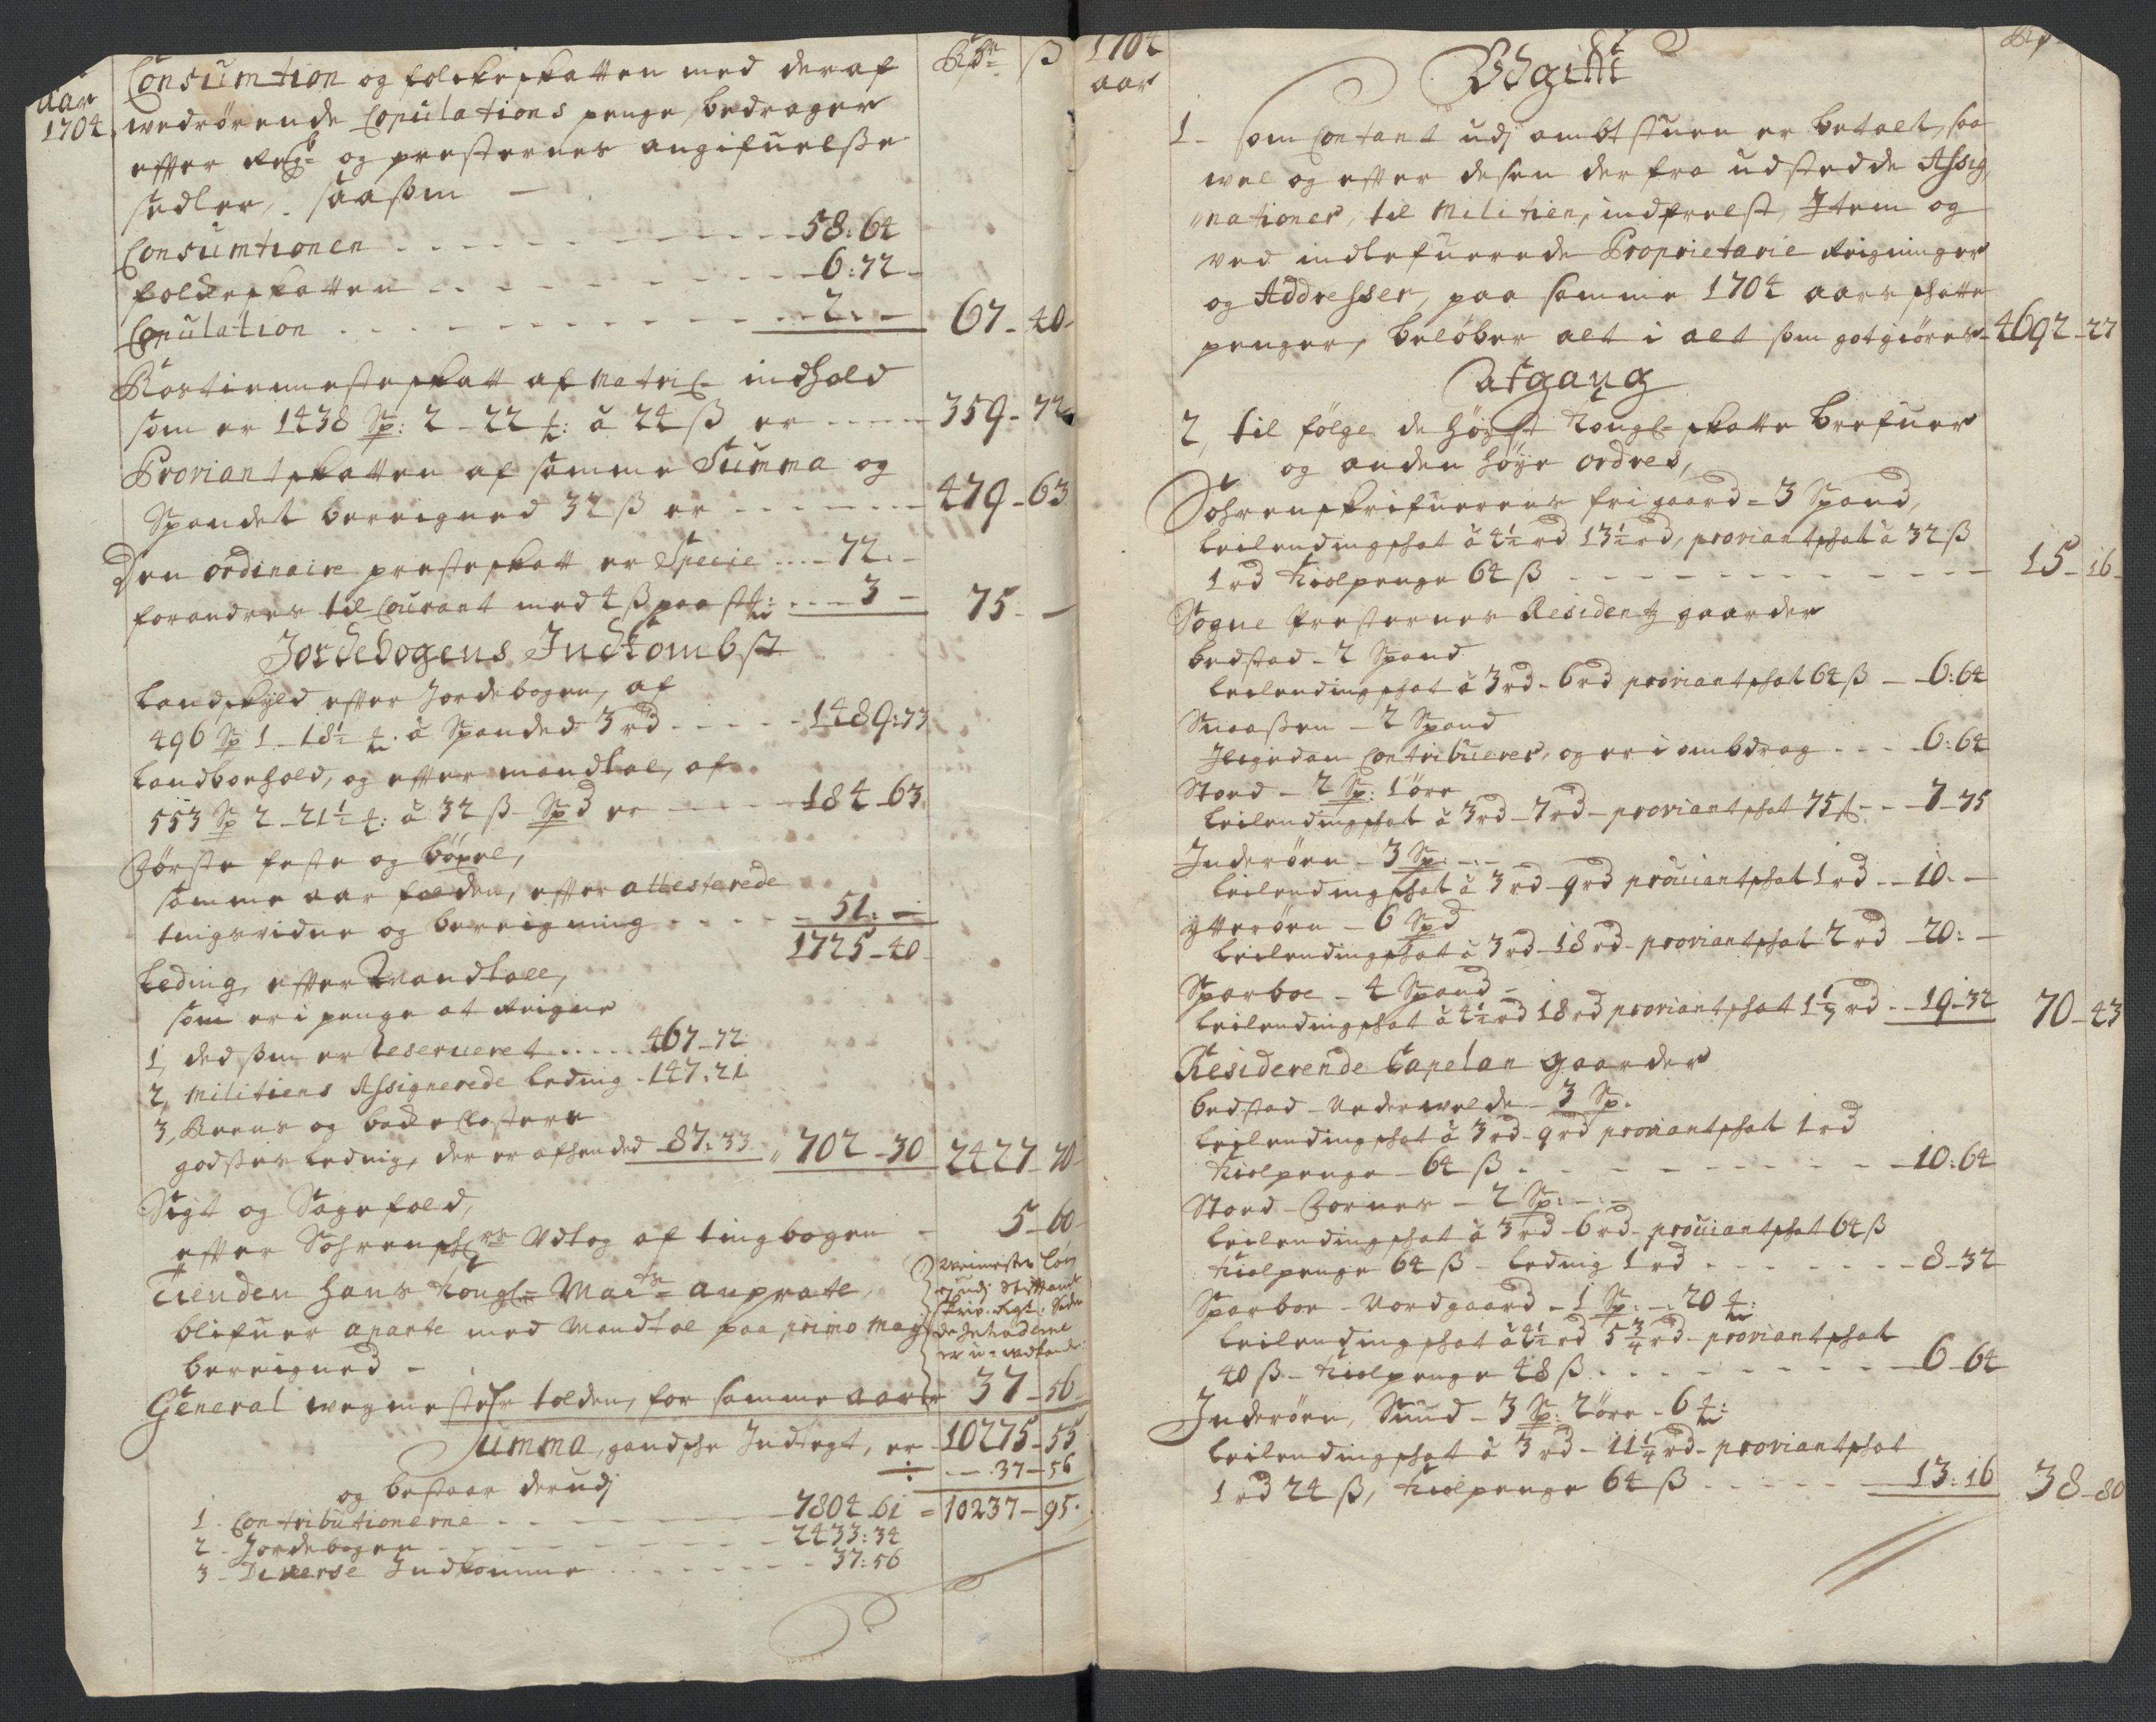 aar
1704
Rdr ß
Consumtion og folcke skatten med deraf
wedrørende Copulations penge, bedrager
efter og presternes angifuelsse
sedler, saasom
Consumtionen 58:64
folcke skatten 6:72
Copulation 2:- 67-40
Rostienneste skatt af Matric indhold
som er 1438 Sp: 2-22 à 24 ß er 359-72
Proviant skatten af samme Summa og
Spandet bereigned 32 ß er 479-63
Den ordinaire preste skatt er Specie 72:-
forandres til Courant med 4 ß paa st: 3- 75-
Jordebogens Indkombst
Landskyld efter Jordebogen, af
496 Sp 1-18½ à Spanded 3 rd 1489:73
Landboehold, og efter mandtal, af
553 Sp 2-21½ : à 32 ß Spd er 184-63
Første feste og böxel,
samme aar falden, efter attesterede
tingsvidne og bereigning 51:-
1725-40
Leding efter Mandtall,
som er i penge at Reigne
1, ded som er Reserveret 467-72
2, Militiens Assignerede leding 147:21
3, Reens og Bache Closters
godsses leding, der er afhended 87:33 702-30 2427-70
Sigt og Sagefald,
efter Sohrenschr Udtog af tingbogen 5-60
Tienden hans Kongl Maits anparte,
blifuer aparte med Mandtal paa primo Maj
bereigned -
General vegmester tolden, for samme aar 37-56
Summa, gandsche Indtegt, er 10275-55
÷ 37-56
og bestaar derudj
1 Contributionerne 7804-61 = 10237-95
2 Jordebogen 2433:34
3 Diverse Indkomme 37:56
1704
aar
Udgifft
1- som Contant udj ambtstuen er betalt, saa
wel og efter desen derfra udstedde Assig-
nationer, til Militien, indfrelst, Item og
ved indlefuerede Proprietarie Reigninger
og Addresser, paa samme 1704 aars schatte
penger, beløber alt i alt som godgiøres 4692-27
Afgang
2, til følge de høyst Kongl- skatte brefuer
og anden høye ordres,
Sohrenskrifuerens fri gaard = 3 Spand,
leilendingschat à 4½ rd 13½ rd, proviantschat à 32 ß
1 rd Kiolpenge 64 ß 15-16
Sogne Presternes Residentz gaarder
bedstad - 2 Spand
leilendingschat à 3 rd - 6 rd proviantschat 64 ß 6:64
Snaassen - 2 Spand
Ligedan Contribuerer, og er i ombdrag 6:64
Stoed - 2 Sp: 1 öre
leilendingschat à 3 rd - 7 rd - proviantschat 75 ß 7-75
Inderøen - 3 Sp:
leilendingschat à 3 rd - 9 rd proviantschat 1 rd 10:-
ytterøen - 6 Spd
leilendingschat à 3 rd - 18 rd - proviantschat 2 rd 20:-
Sparboe - 4 Spand -
leilendingschat à 4½ rd 18 rd proviantschat 1⅓ rd 19-32 70-43
Residerende Capelan gaarder
bedstad - Vederwelde - 3 Sp.
leilendingschat à 3 rd - 9 rd proviantschat 1 rd
Kiolpenge - 64 ß 10:64
Stoed - - 2 Sp:
leilendingschat à 3 rd - 6 rd - proviantschat 64 ß
Kiolpenge 64 ß - leding 1 rd 8-32
Sparboe - Nordgaard - 1 Sp: - 20
leilendingschat à 4½ rd 5¾ rd - proviantschat
40 ß - Kiolpenge 48 ß 6-64
Inderøen, Sund - 3 Sp: 2 öre - 6
leilendingschat à 3 rd - 11¼ rd - proviantschat
1 rd 24 ß, Kiolpenge 64 ß 13:16 38-80